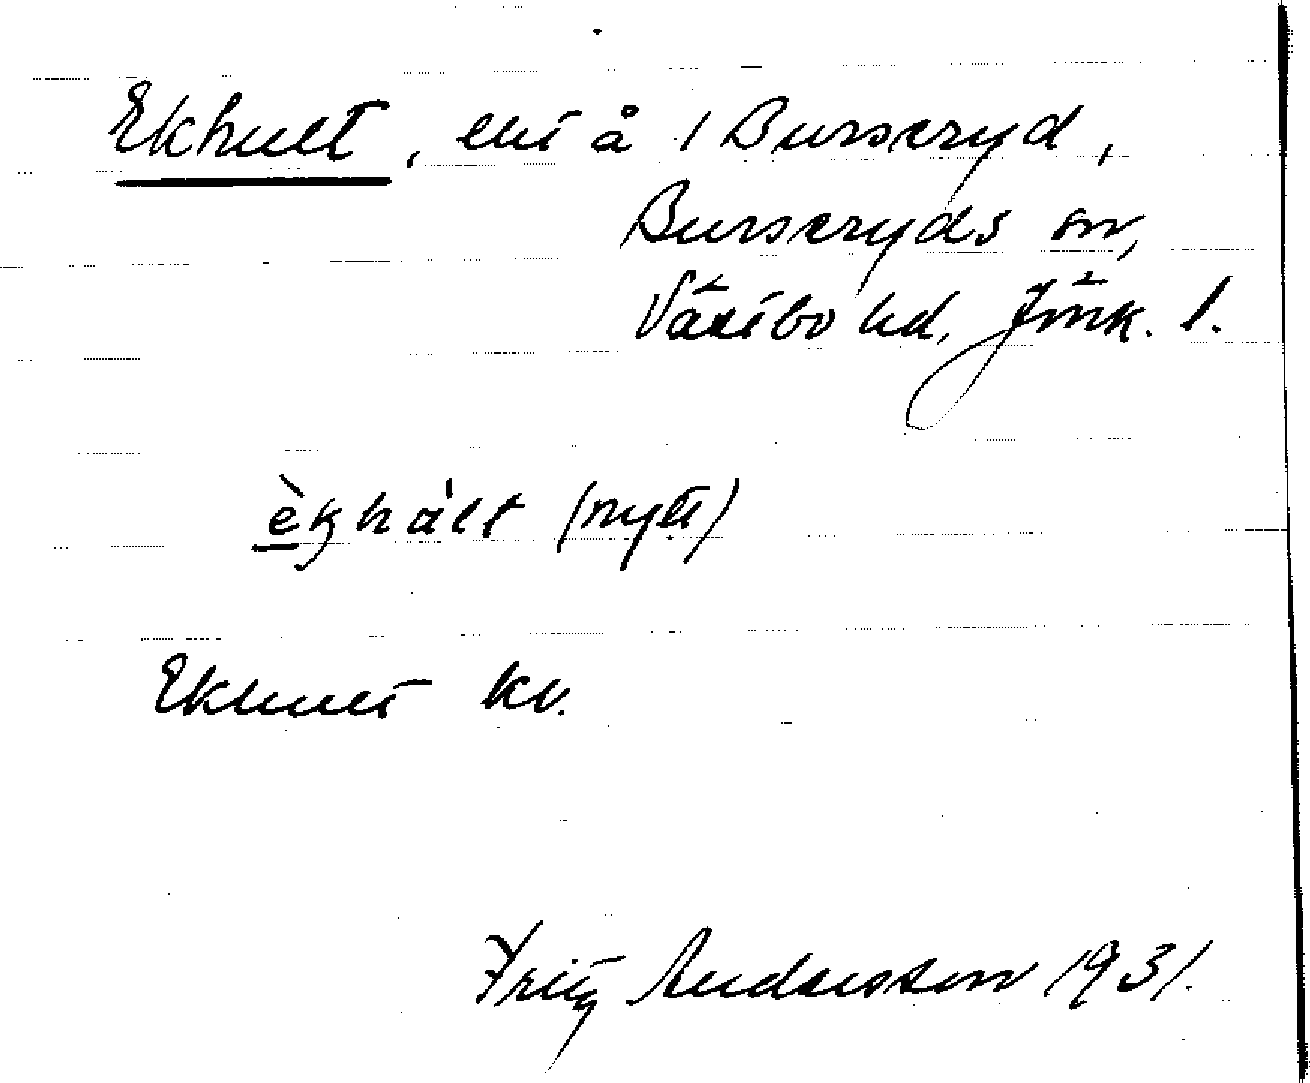 Ekhult, lht å 1 Burseryd,
Burseryds sn,
Västbo hd, Jönk. l.
èkhàlt (nytt)
Ekhult kv.
Fritz Andersson 1931.